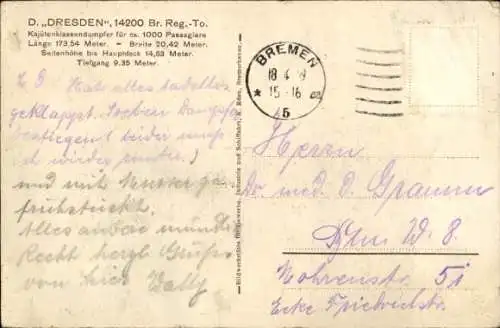 D. „DRESDEN", 14200 Br. Reg.-To.
Kajütenklassendampfer für ca. 1000 Passagiere
Länge 173,54 Meter. – Breite 20,42 Meter.
Seitenhöhe bis Hauptdeck 14,63 Meter.
Tiefgang 9,35 Meter.
Hat alles tadellos
geklappt. Soeben Dampfer
bestiegen (leider muss
ich wieder runter)
und mit
gefrühstückt.
Alles andere mündl.
Recht herzl. Grüße
von hier
BREMEN
18 4
15-16
* 5
Herrn
Dr med. O.
W. 8.
Mohrenstr. 51
Ecke Friedrichstr.